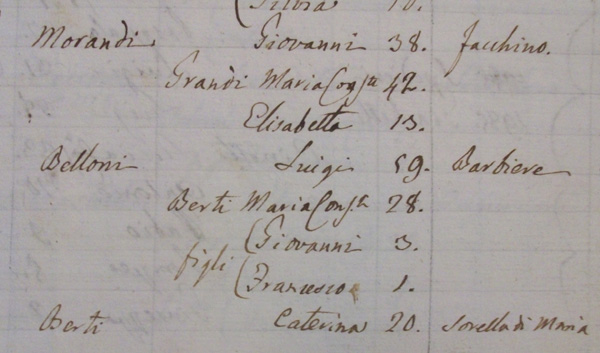 Silvia 10.
Morandi Giovanni 38. facchino.
Grandi Maria Conj.ta 42.
Elisabetta 13.
Belloni Luigi 59. Barbiere
Berti Maria Conj.ta 28.
Giovanni 3.
figli
Francesco 1.
Berti Caterina 20. sorella di Maria